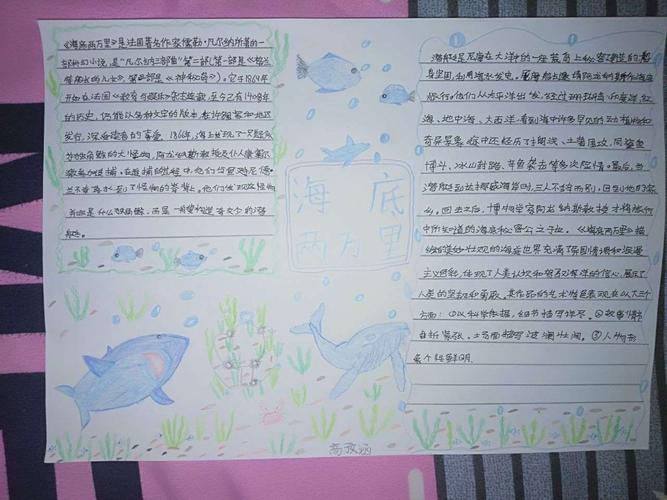 《海底两万里》是法国著名作家儒勒·凡尔纳所著的一
部科幻小说,是"凡尔纳三部曲"第二部(第一部是《格兰
特船长的儿女》第三部是《神秘岛》)。它于18
开始在法国《教育与娱乐》杂志连载,至今已有140多年
的历史,仍能以各种文字的版本
发行,深受读者的喜爱。1866年,海上发现了一只
大怪物,阿龙纳斯教授及仆人康塞尔
在追捕的过程中,他们与鱼叉手尼德·
兰不幸落水,到了怪物的脊背上。他们发现这怪物
并非是什么 而是一艘构造奇妙的潜
艇。
海 底
两万里
潜艇是尼摩在大洋中的一座荒岛上秘密建造的
身坚固,利用海水发电。尼摩船长邀请阿龙纳斯作海底
旅行。他们从太平洋出发,经过珊瑚岛、印度洋、红
海、地中海、大西洋,看到海中许多罕见的动植物和
奇异景象。途中还经历了搁浅、土著围攻、同鲨鱼
搏斗、冰山封路、章鱼袭击等多次险情。最后,当
潜艇到达挪威海岸时,三人不辞而别,回到他的家
乡。回去之后,博物学家阿龙纳斯教授才将旅行
中所知道的海底秘密公之于世。《海底两万里》描
绘的美妙壮观的海底世界充满了异国情调和浪漫
主义色彩,体现了人类认识和驾驭海洋的信心,展示了
人类的坚毅和勇敢。其作品的艺术特色表现在以下三个
方面:①以科学依据,细节描写详尽。②故事情节
曲折紧张,场面描写波澜壮阔。③人物形
象个性鲜明